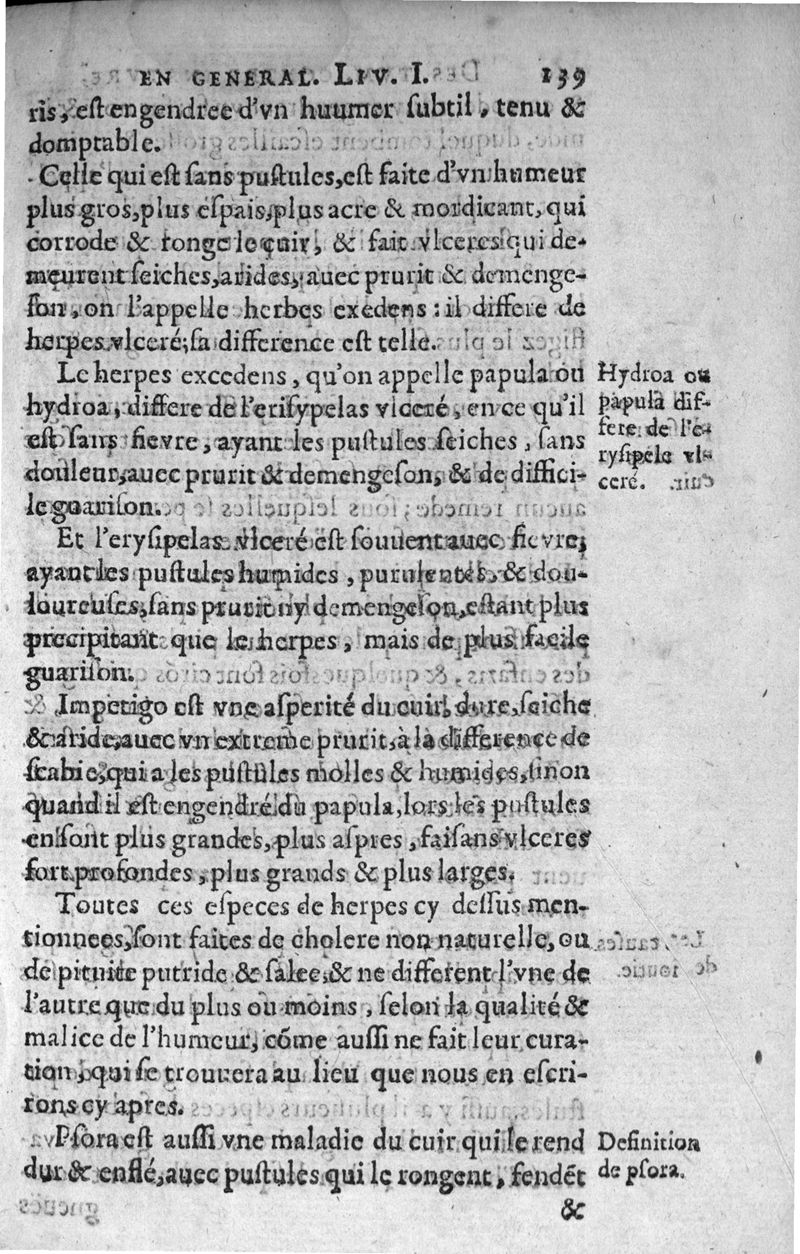 EN GENERAL. LIV. I. 139
ris, est engendree d'vn huumer subtil, tenu &
domptable.
Celle qui est sans pustules, est faite d'vn humeur
plus gros, plus espais, plus acre & mordicant, qui
corrode & ronge le cuir, & fait vlceres qui de-
meurent seiches, arides, auec prurit & demenge-
son, on l'appelle herbes exedens : il differe de
herpes vlceré; sa difference est telle.
Le herpes excedens, qu'on appelle papula ou
hydroa, differe de l'erisypelas vlceré, en ce qu'il
est sans fievre, ayant les pustules seiches, sans
douleur, auec prurit & demengeson, & de diffici-
le guarison.
Hydroa ou
papula dif-
fere de l'e-
rysipele vl-
ceré.
Et l'erysipelas vlceré est souuent auec fievre,
ayant les pustules humides, purulentes & dou-
loureuses, sans prurit ny demengeson, estant plus
precipitant que le herpes, mais de plus facile
guarison.
Impetigo est vne asperité du cuir dure, seiche
& aride, auec vn extreme prurit, à la difference de
scabie, qui a les pustules molles & humides, sinon
quand il est engendré du papula, lors les pustules
en sont plus grandes, plus aspres, faisans vlceres
fort profondes, plus grands & plus larges.
Toutes ces especes de herpes cy dessus men-
tionnees, sont faites de cholere non naturelle, ou
de pituite putride & salee, & ne different l'vne de
l'autre que du plus ou moins, selon la qualité &
malice de l'humeur, cõme aussi ne fait leur cura-
tion, qui se trouuera au lieu que nous en escri-
rons cy apres.
Psora est aussi vne maladie du cuir qui le rend
dur & enflé, auec pustules qui le rongent, fendẽt
Definition
de psora.
&